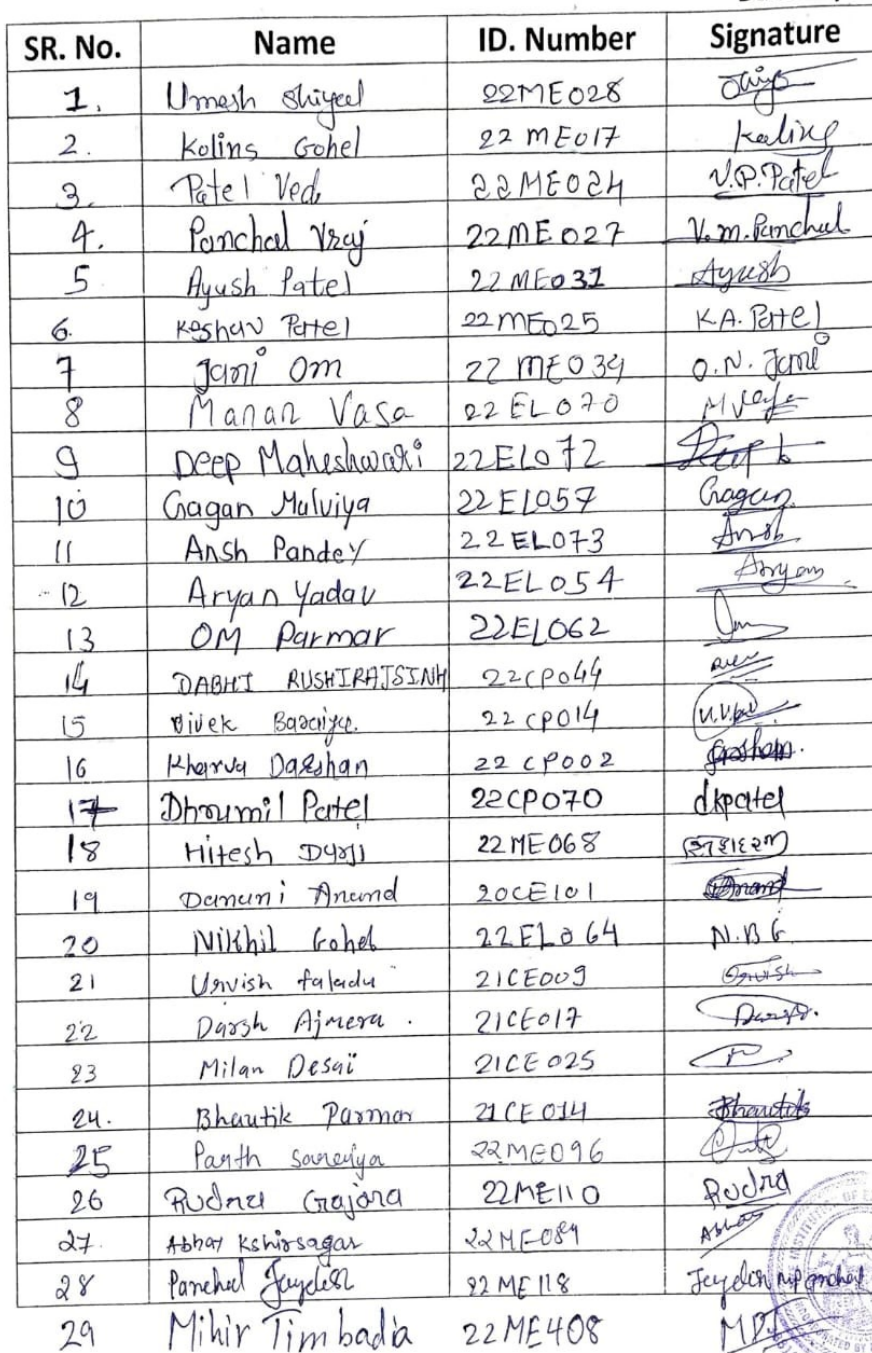 SR. No. Name ID. Number Signature
1. Umesh Shiyal 22ME028
2. Kolins Gohel 22ME017 Kolins
3. Patel Ved 22ME024 V.P.Patel
4. Panchal Vraj 22ME027 V.m.Panchal
5 Ayush Patel 22ME031 Ayush
6. Keshav Patel 22ME025 K.A. Patel
7 Jani Om 22ME034 O.N. Jani
8 Manan Vasa 22EL070
9 Deep Maheshwari 22EL072
10 Gagan Malviya 22EL057 Gagan
11 Ansh Pandey 22EL073 Ansh
12 Aryan Yadav 22EL054 Aryan
13 OM Parmar 22EL062
14 DABHI RUSHIRAJSINH 22CP044
15 Vivek Baraiya. 22CP014
16 Kharva Darshan 22CP002
17 Dhrumil Patel 22CP070 dkpatel
18 Hitesh Darji 22ME068
19 Danani Anand 20CE101 Anand
20 Nikhil Gohel 22EL064 N.B G
21 Urvish faladu 21CE009 Urvish
22 Darsh Ajmera. 21CE017
23 Milan Desai 21CE025
24. Bhautik Parmar 21CE014 Bhautik
25 Parth 22ME096
26 Rudra Gajara 22ME110 Rudra
27. Abhay Kshirsagar 22ME089 Abhay
28 Panchal Jaydeep 22ME118
29 Mihir Timbadia 22ME408